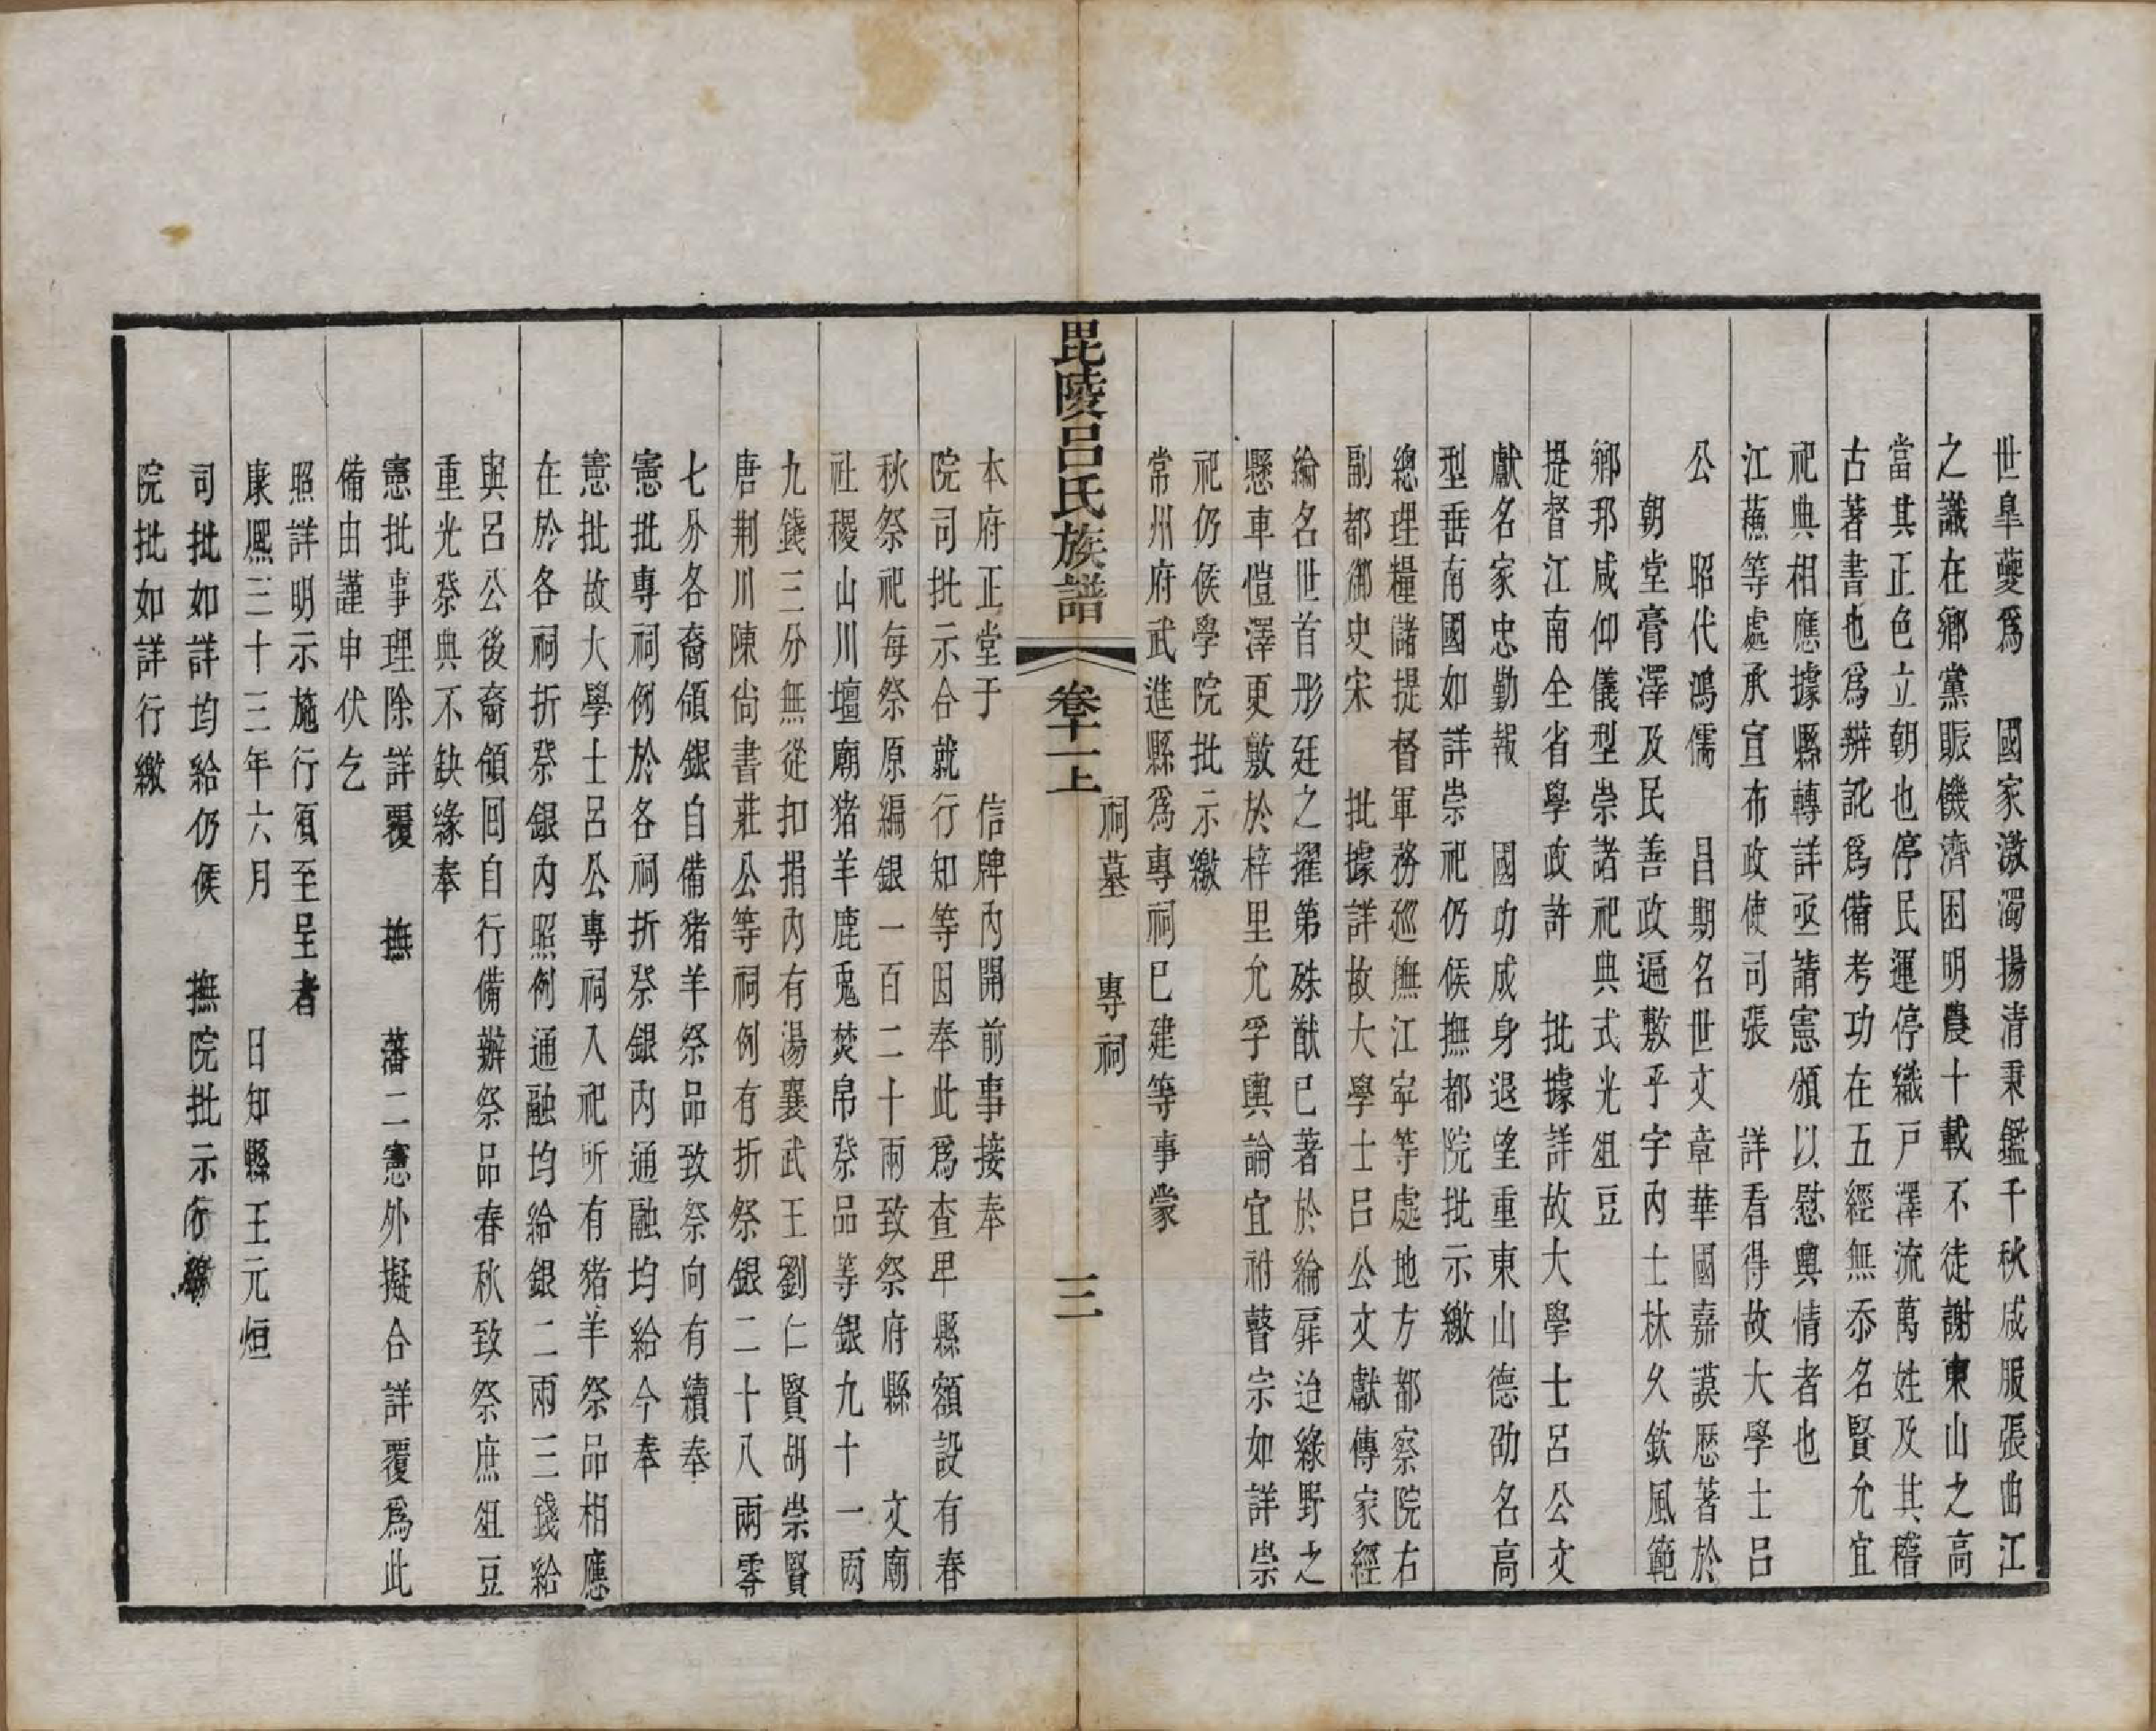 世皐夔爲　國家激濁揚清秉鑑千秋咸服張曲江
之識在鄉黨賑饑濟困明農十載不徒謝東山之高
當其正色立朝也停民運停織戶澤流萬姓及其稽
古著書也爲辨訛爲備考功在五經無忝名賢允宜
祀典相應據縣轉詳亟請憲頒以慰輿情者也
江蘓等處承宣布政使司張　詳看得故大學士呂
公　昭代鴻儒　昌期名世文章華國嘉謨歷著於
朝堂膏澤及民善政遍敷乎宇內士林久欽風範
鄉邦咸仰儀型崇諸祀典式光俎豆
提督江南全省學政許　批據詳故大學士呂公文
獻名家忠勤報　國功成身退望重東山德劭名高
型垂南國如詳崇祀仍候撫都院批示繳
總理糧儲提督軍務巡撫江寧等處地方都察院右
副都御史宋　批據詳故大學士呂公文獻傳家經
綸名世首彤廷之擢第殊猷已著於綸扉迨綠野之
懸車愷澤更敷於梓里允孚輿論宜祔瞽宗如詳崇
祀仍候學院批示繳
常州府武進縣爲專祠已建等事蒙
毘陵呂氏族譜　卷十一上　祠墓　專祠　三
本府正堂于　信牌內開前事接奉
院司批示合就行知等因奉此爲查卑縣額設有春
秋祭祀每祭原編銀一百二十兩致祭府縣　文廟
社稷山川壇廟猪羊鹿兎焚帛祭品等銀九十一兩
九錢三分無從扣捐內有湯襄武王劉仁賢胡崇賢
唐荆川陳尙書莊公等祠例有折祭銀二十八兩零
七分各裔領銀自備猪羊祭品致祭向有續奉
憲批專祠例於各祠折祭銀內通融均給今奉
憲批故大學士呂公專祠入祀所有猪羊祭品相應
在於各祠折祭銀內照例通融均給銀二兩三錢給
與呂公後裔領回自行備辦祭品春秋致祭庶俎豆
重光祭典不缺緣奉
憲批事理除詳覆　撫　藩二憲外擬合詳覆爲此
備由謹申伏乞
照詳明示施行須至呈者
康熙三十三年六月　　日知縣王元烜
司批如詳均給仍候　撫院批示行繳
院批如詳行繳